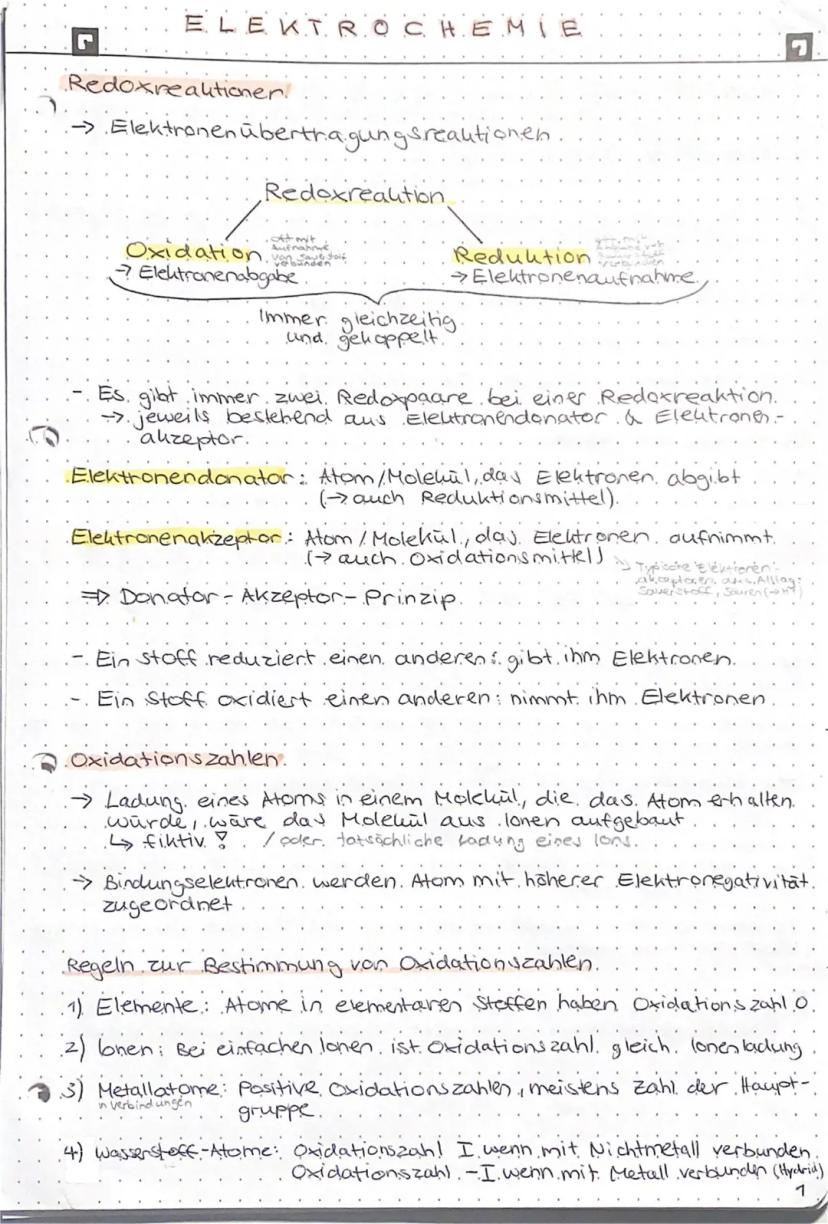 ELEKTROCHEMIE
Redoxreaktionen
→ Elektronenübertragungsreaktionen
Redoxreaktion
Oxidation oft mit Aufnahme von Sauerstoff verbunden
→ Elektronenabgabe
Reduktion
→ Elektronenaufnahme
Immer gleichzeitig
und gekoppelt
- Es gibt immer zwei Redoxpaare bei einer Redoxreaktion
→ jeweils bestehend aus Elektronendonator & Elektronen-
akzeptor
Elektronendonator: Atom/Molekül, das Elektronen abgibt
(→ auch Reduktionsmittel)
Elektronenakzeptor: Atom/Molekül, das Elektronen aufnimmt
(→ auch Oxidationsmittel)
Typische Elektronen-
akzeptoren aus Alltag:
Sauerstoff, Säuren (→ H⁺)
⇒ Donator-Akzeptor-Prinzip
- Ein Stoff reduziert einen anderen: gibt ihm Elektronen
- Ein Stoff oxidiert einen anderen: nimmt ihm Elektronen
Oxidationszahlen
→ Ladung eines Atoms in einem Molekül, die das Atom erhalten
würde, wäre das Molekül aus Ionen aufgebaut
↳ fiktiv! / oder tatsächliche Ladung eines Ions
→ Bindungselektronen werden Atom mit höherer Elektronegativität
zugeordnet
Regeln zur Bestimmung von Oxidationszahlen
1) Elemente: Atome in elementaren Stoffen haben Oxidationszahl 0
2) Ionen: Bei einfachen Ionen ist Oxidationszahl gleich Ionenladung
3) Metallatome: Positive Oxidationszahlen, meistens Zahl der Haupt-
in Verbindungen gruppe
4) Wasserstoff-Atome: Oxidationszahl I wenn mit Nichtmetall verbunden
Oxidationszahl -I wenn mit Metall verbunden (Hydrid)
1